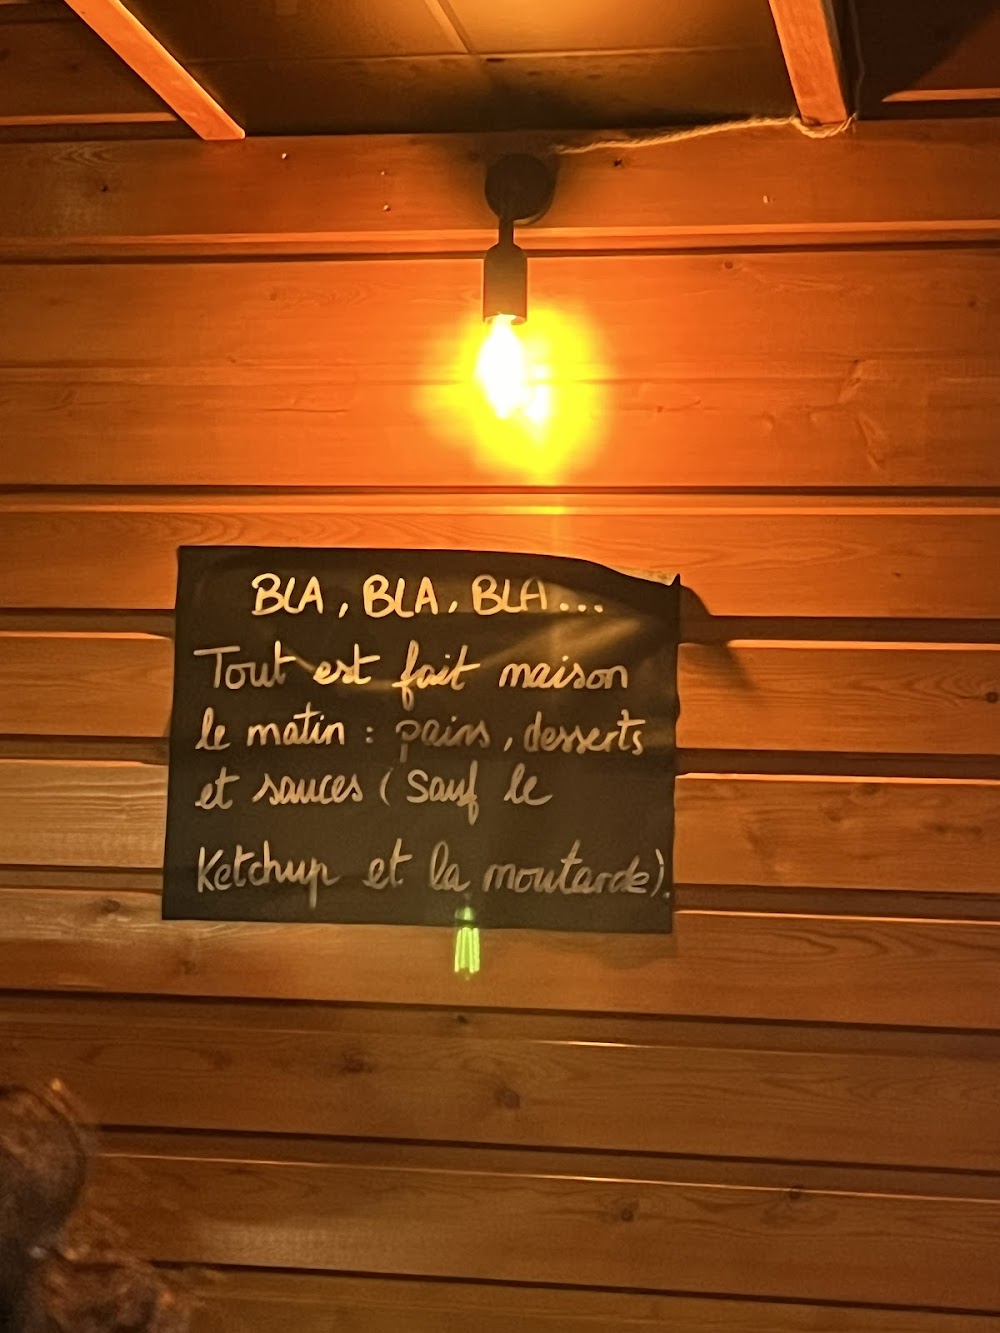 BLA, BLA, BLA...
Tout est fait maison
le matin : pains, desserts
et sauces (Sauf le
Ketchup et la moutarde).